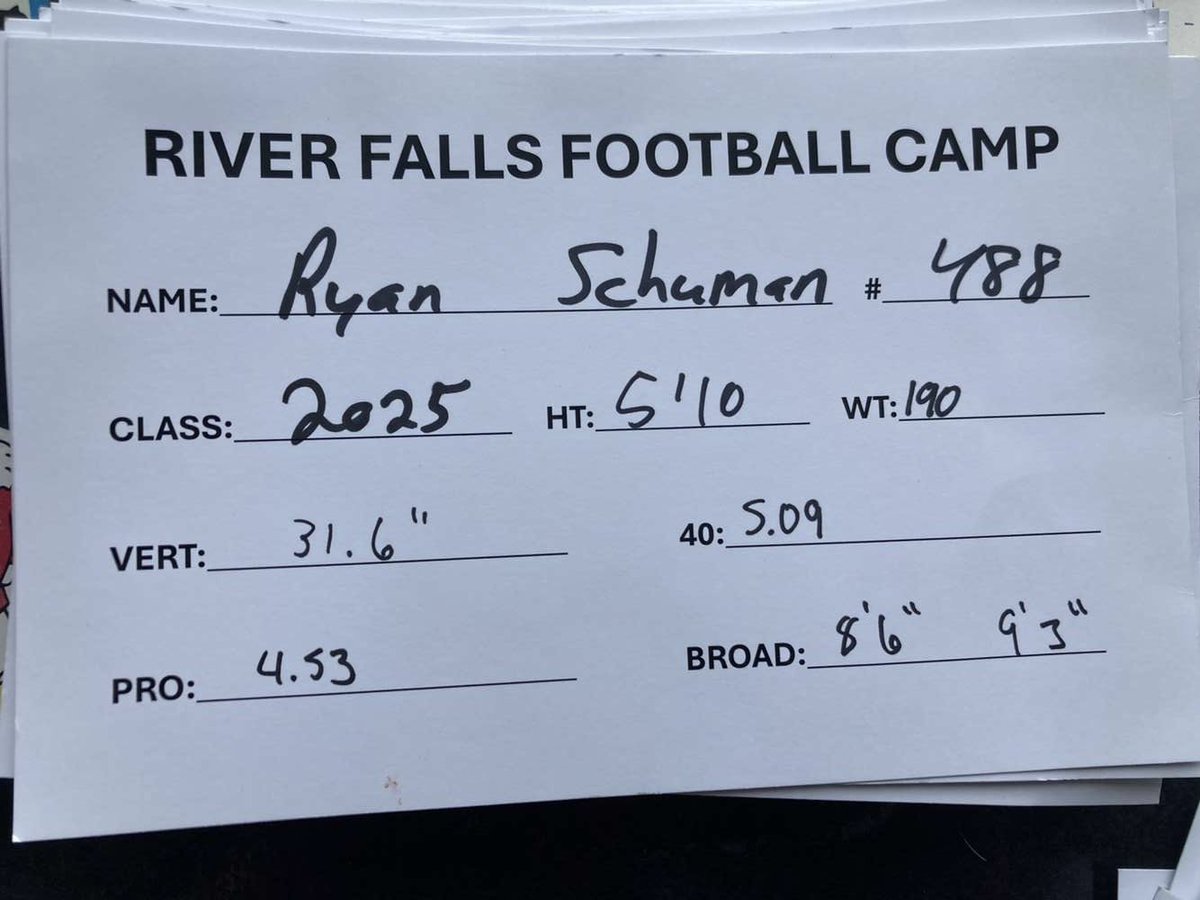 RIVER FALLS FOOTBALL CAMP
NAME: Ryan Schuman # 488
CLASS: 2025 HT: 5'10 WT: 190
VERT: 31.6" 40: 5.09
PRO: 4.53 BROAD: 8'6" 9'3"